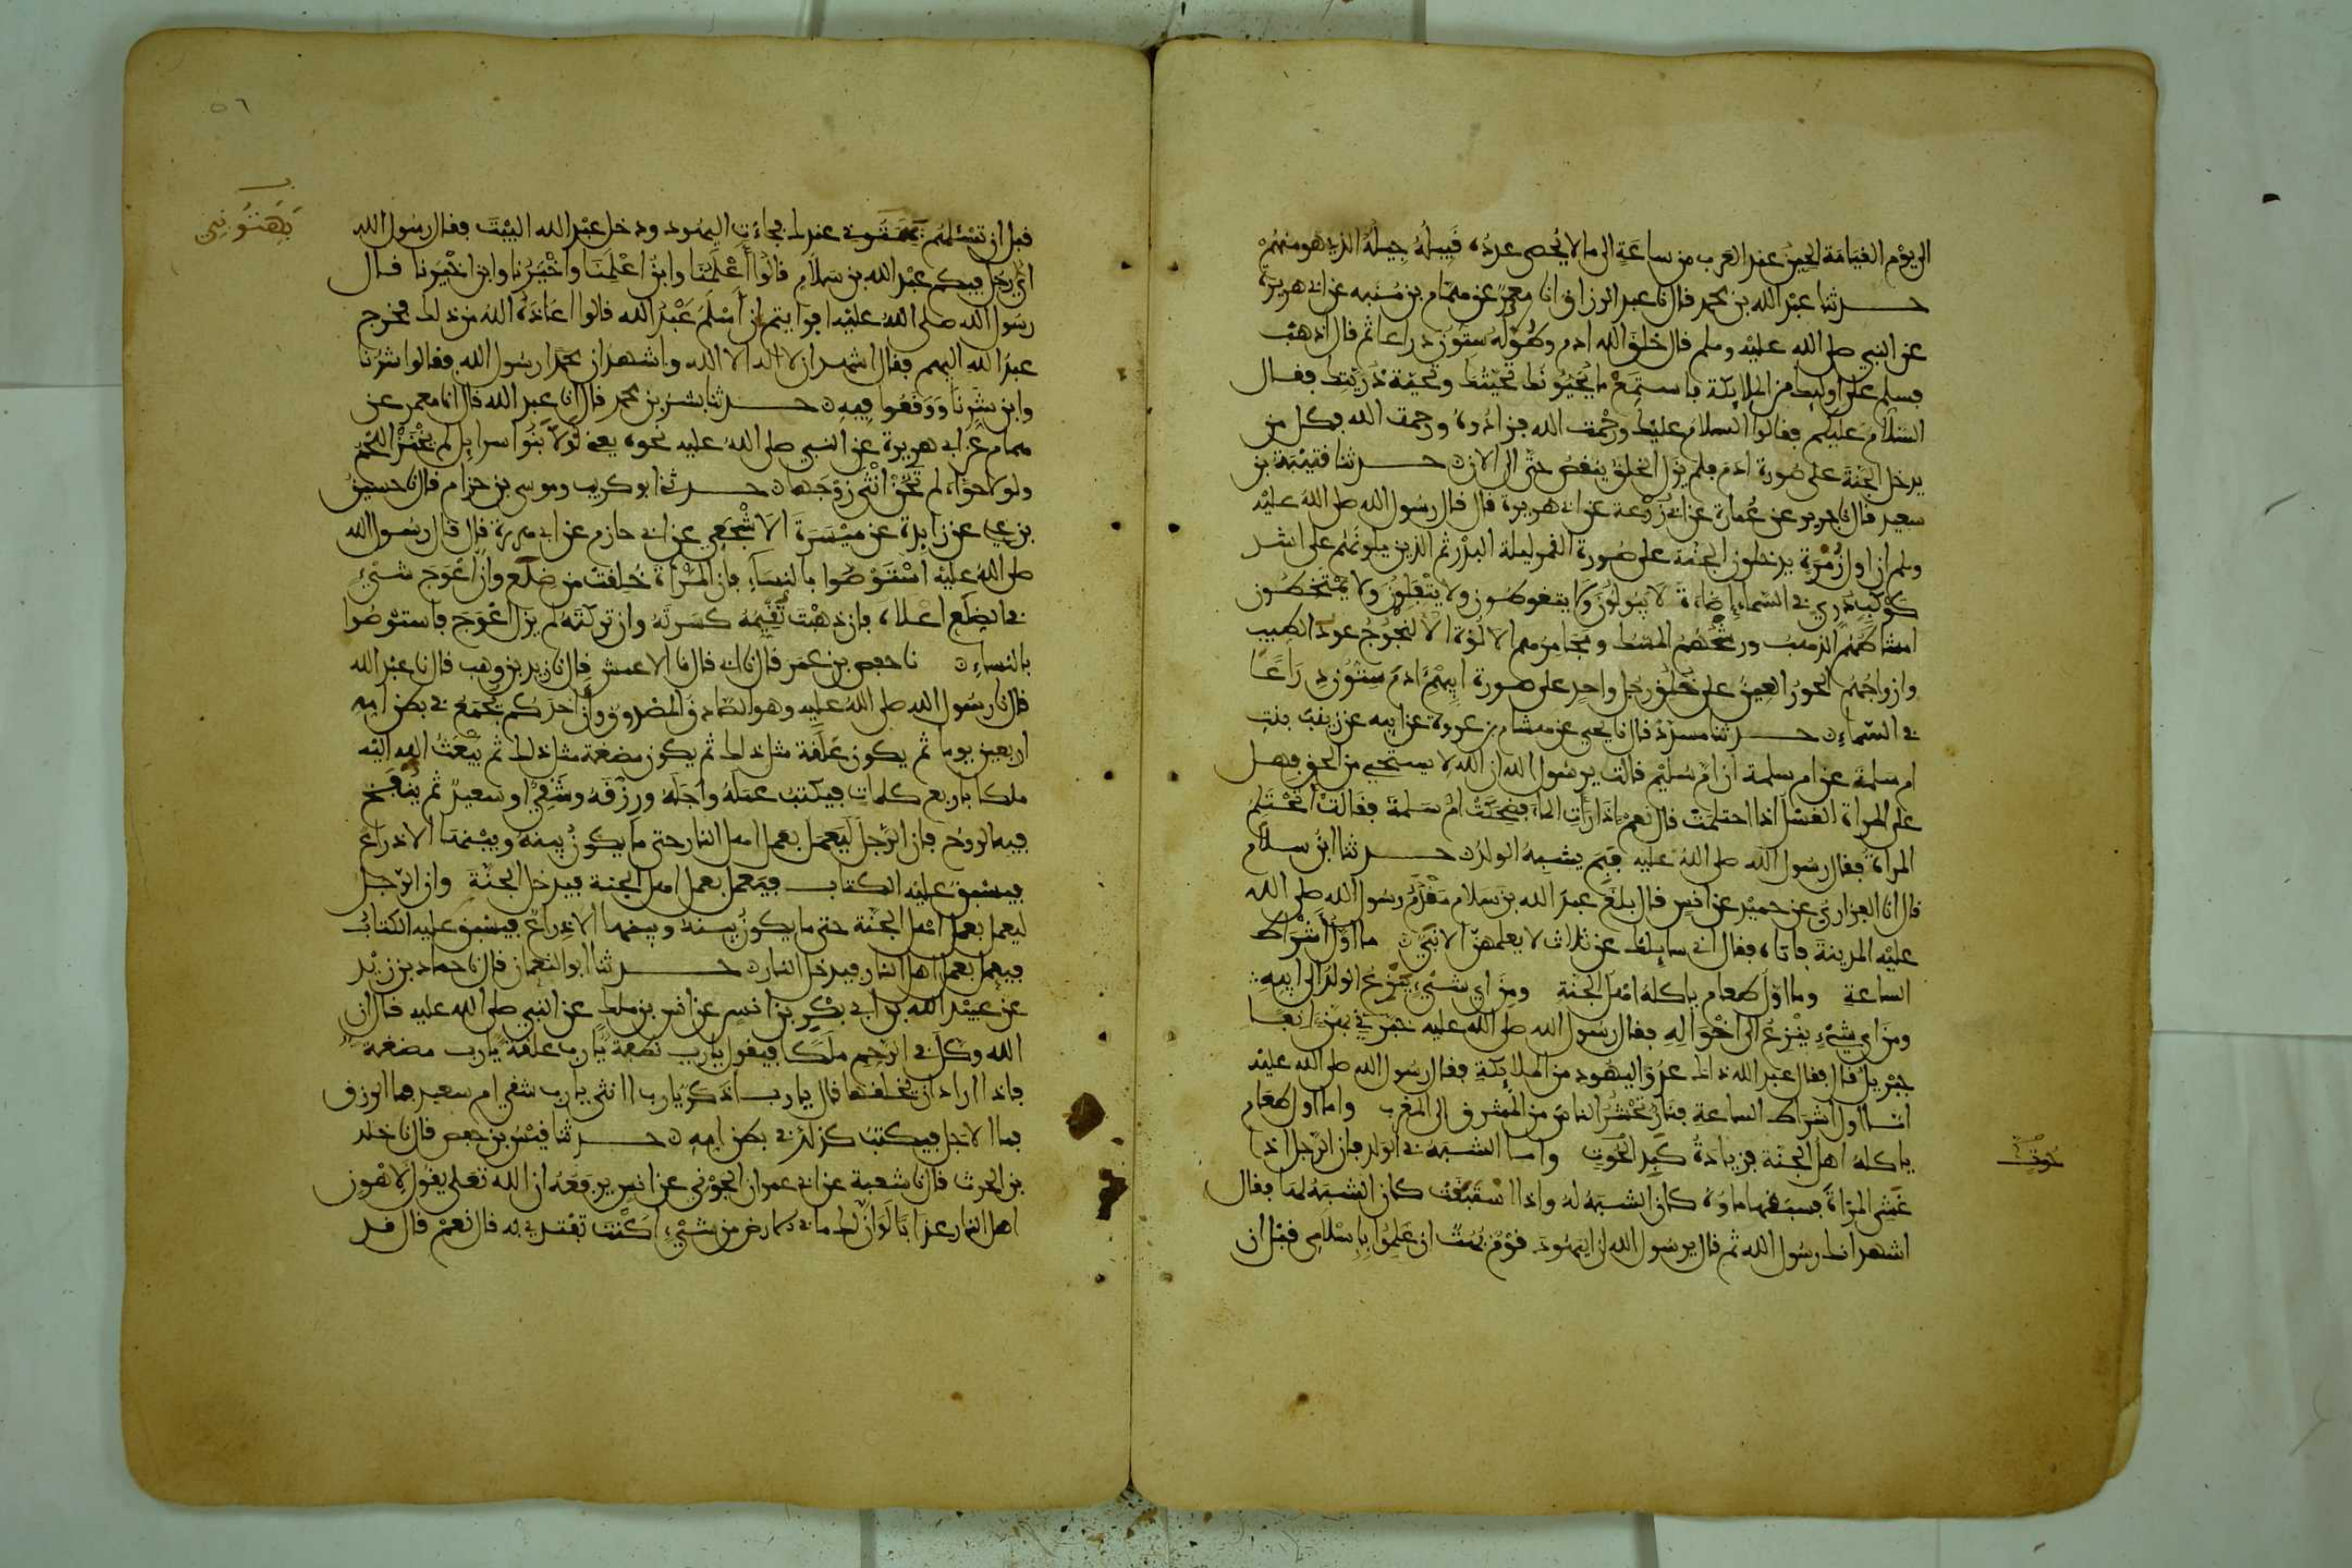 الى يوم القيامة الحين عند العرب من ساعة الى ما لا يحصى عدده قبيله جيله الذي هو منهم
حدثنا عبد الله بن محمد قال نا عبد الرزاق انا معمر عن همام بن منبه عن ابي هريرة
عن النبي صلى الله عليه وسلم قال خلق الله ادم وطوله ستون ذراعا ثم قال اذهب
فسلم على اوليك من الملايكة فاستمع ما يحيونك تحيتك وتحية ذريتك فقال
السلام عليكم فقالوا السلام عليك ورحمت الله فزادوه ورحمت الله فكل من
يدخل الجنة على صورة ادم فلم يزل الخلق ينقص حتى الان حدثنا قتيبة بن
سعيد قال نا جرير عن عمارة عن ابي زرعة عن ابي هريرة قال قال رسول الله صلى الله عليه
وسلم ان اول زمرة يدخلون الجنة على صورة القمر ليلة البدر ثم الذين يلونهم على اشد
كوكب دري في السماء اضاءة لا يبولون ولا يتغوطون ولا يتفلون ولا يمتخطون
امشاطهم الذهب ورشحهم المسك ومجامرهم الالوة الالنجوج عود الطيب
وازواجهم الحور العين على خلق رجل واحد على صورة ابيهم ادم ستون ذراعا
في السماء حدثنا مسدد قال نا يحيى عن هشام بن عروة عن ابيه عن زينب بنت
ام سلمة عن ام سلمة ان ام سليم قالت يرسول الله ان الله لا يستحيي من الحق فهل
على المراة الغسل اذا احتلمت قال نعم اذا رات الماء فضحكت ام سلمة فقالت تحتلم
المراة فقال رسول الله صلى الله عليه فبم يشبه الولد حدثنا ابن سلام
قال انا الفزاري عن حميد عن انس قال بلغ عبد الله بن سلام مقدم رسول الله صلى الله
عليه المدينة فاتاه فقال اني سايلك عن ثلاث لا يعلمهن الا نبي ما اول اشراط
الساعة وما اول طعام ياكله اهل الجنة ومن اي شيء ينزع الولد الى ابيه
ومن اي شيء ينزع الى اخواله فقال رسول الله صلى الله عليه خبرني بهن انفا
جبريل قال فقال عبد الله ذاك عدو اليهود من الملايكة فقال رسول الله صلى الله عليه
اما اول اشراط الساعة فنار تحشر الناس من المشرق الى المغرب واما اول طعام
ياكله اهل الجنة فزيادة كبد الحوت واما الشبه في الولد فان الرجل اذا
غشي المراة فسبقها ماؤه كان الشبه له واذا استبقت كان الشبه لها فقال
اشهد انك رسول الله ثم قال يرسول الله ان اليهود قوم بهت ان علموا باسلامي قبل ان
حوت
٥٦
بهتوني
قبل ان تسئلهم بهتوني عندك فجاءت اليهود ودخل عبد الله البيت فقال رسول الله
اي رجل فيكم عبد الله بن سلام قالوا اعلمنا وابن اعلمنا واخيرنا وابن اخيرنا فقال
رسول الله صلى الله عليه افرايتم ان اسلم عبد الله قالوا اعاذه الله من ذلك فخرج
عبد الله اليهم فقال اشهد ان لا اله الا الله واشهد ان محمدا رسول الله فقالوا شرنا
وابن شرنا ووقعوا فيه حدثنا بشر بن محمد قال انا عبد الله قال انا معمر عن
همام عن ابي هريرة عن النبي صلى الله عليه نحوه يعني لولا بنوا اسرايل لم يخنز اللحم
ولولا حواء لم تخن انثى زوجها حدثنا ابو كريب وموسى بن حزام قال نا حسين
بن علي عن زايدة عن ميسرة الاشجعي عن ابي حازم عن ابي هريرة قال قال رسول الله
صلى الله عليه استوصوا بالنساء فان المراة خلقت من ضلع وان اعوج شيء
في الضلع اعلاه فان ذهبت تقيمه كسرته وان تركته لم يزل اعوج فاستوصوا
بالنساء نا حفص بن عمر قال نا ابي قال نا الاعمش قال نا زيد بن وهب قال نا عبد الله
قال نا رسول الله صلى الله عليه وهو الصادق المصدوق وان احدكم يجمع في بطن امه
اربعين يوما ثم يكون علقة مثل ذلك ثم يكون مضغة مثل ذلك ثم يبعث الله اليه
ملكا باربع كلمات فيكتب عمله واجله ورزقه وشقي او سعيد ثم ينفخ
فيه الروح فان الرجل ليعمل بعمل اهل النار حتى ما يكون بينه وبينها الا ذراع
فيسبق عليه الكتاب فيعمل بعمل اهل الجنة فيدخل الجنة وان الرجل
ليعمل بعمل اهل الجنة حتى ما يكون بينه وبينها الا ذراع فيسبق عليه الكتاب
فيعمل بعمل اهل النار فيدخل النار حدثنا ابو النعمان قال نا حماد بن زيد
عن عبيد الله بن ابي بكر بن انس عن انس بن ملك عن النبي صلى الله عليه قال ان
الله وكل في الرحم ملكا فيقول يا رب نطفة يا رب علقة يا رب مضغة
فاذا اراد ان يخلقها قال يا رب اذكر يا رب انثى يا رب شقي ام سعيد فما الرزق
فما الاجل فيكتب كذلك في بطن امه حدثنا قيس بن حفص قال نا خلد
بن الحرث قال نا شعبة عن ابي عمران الجوني عن انس يرفعه ان الله تعلى يقول لاهون
اهل النار عذابا لو ان لك ما في الارض من شيء اكنت تفتدي به قال نعم قال قد